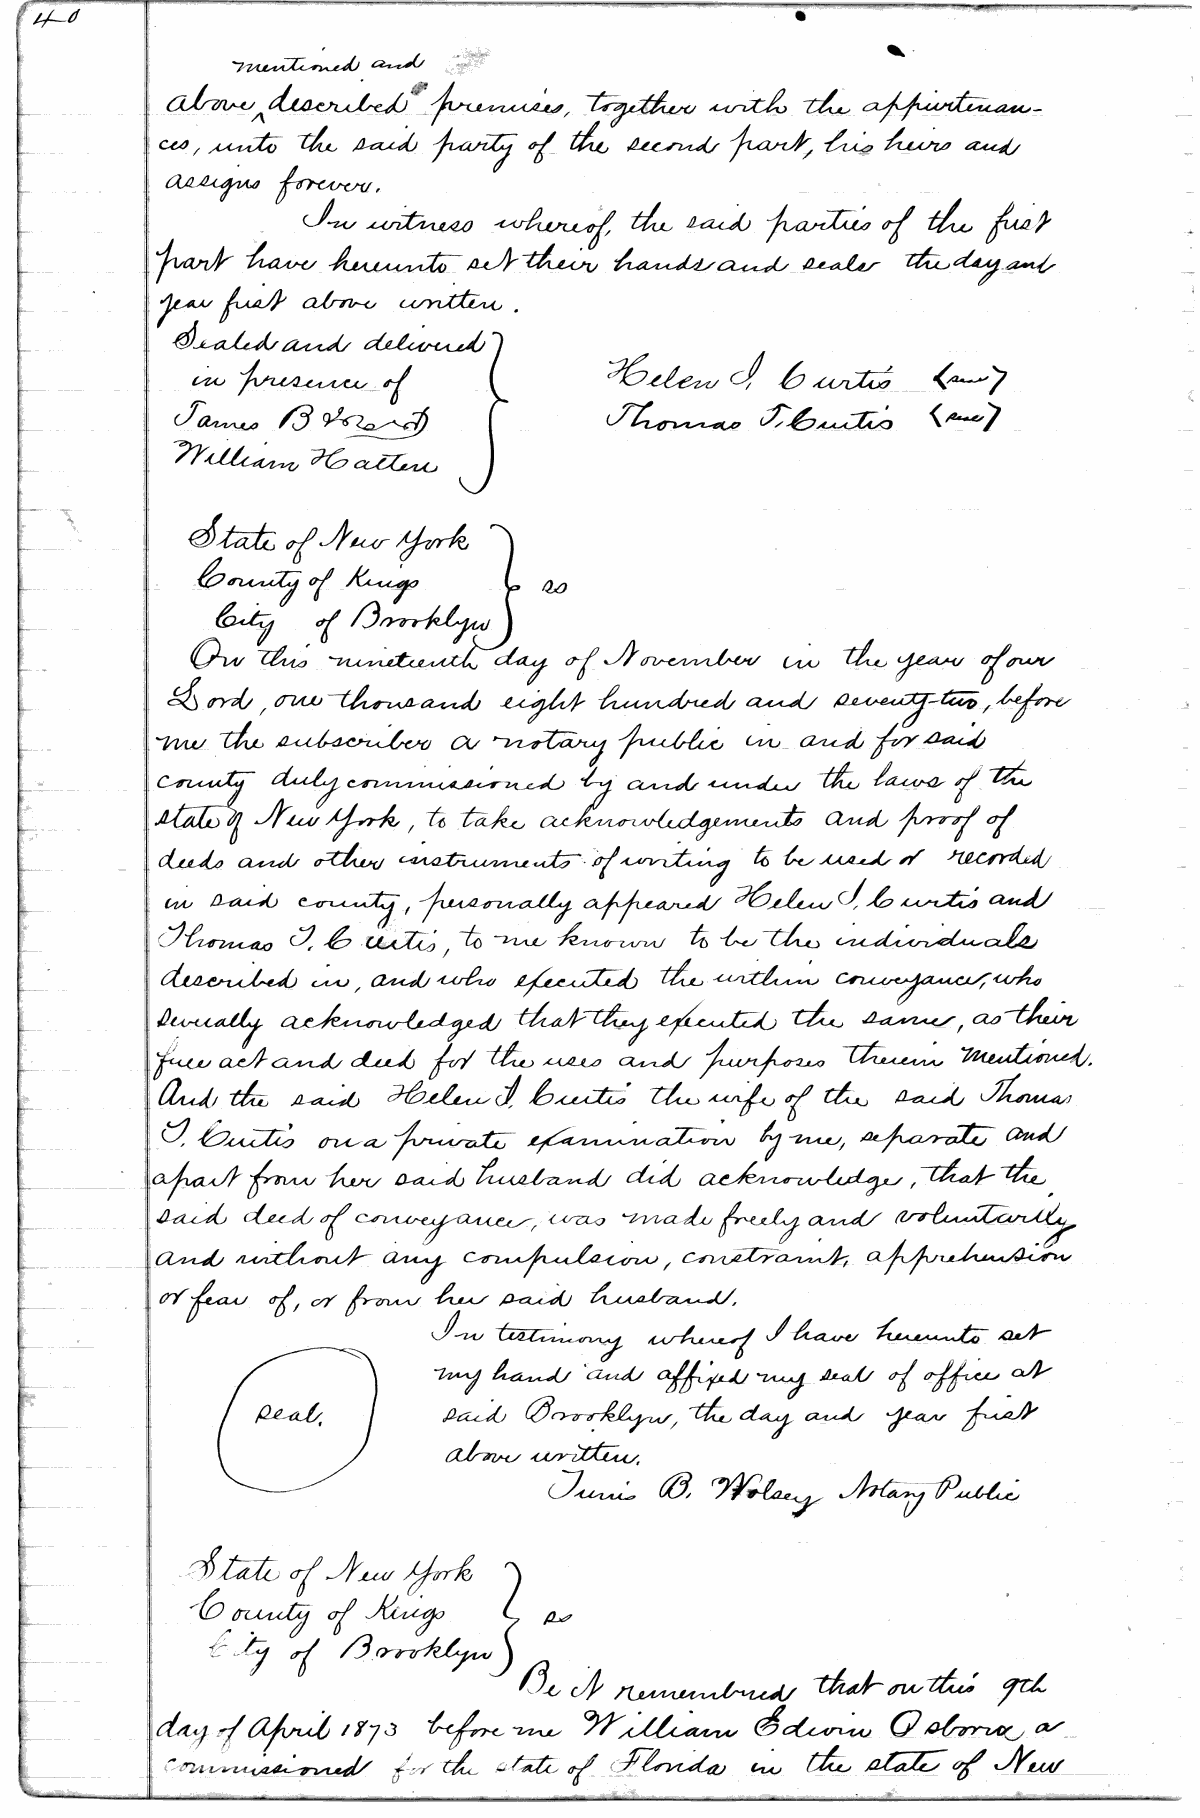 40
mentioned and
above ‸ described premises, together with the appurtenan-
ces, unto the said party of the second part, his heirs and
assigns forever.
In witness whereof, the said parties of the first
part have hereunto set their hands and seals the day and
year first above written.
Sealed and delivered
in presence of
James B
William Hatten
Helen I. Curtis {seal}
Thomas T. Curtis {seal}
State of New York
County of Kings } ss
City of Brooklyn
On this nineteenth day of November in the year of our
Lord, one thousand eight hundred and seventy-two, before
me the subscriber a notary public in and for said
county duly commissioned by and under the laws of the
state of New York, to take acknowledgements and proof of
deeds and other instruments of writing to be used or recorded
in said county, personally appeared Helen I. Curtis and
Thomas T. Curtis, to me known to be the individuals
described in, and who executed the within conveyance, who
severally acknowledged that they executed the same, as their
free act and deed for the uses and purposes therein mentioned.
And the said Helen I. Curtis the wife of the said Thomas
T. Curtis on a private examination by me, separate and
apart from her said husband did acknowledge, that the
said deed of conveyance, was made freely and voluntarily
and without any compulsion, constraint, apprehension
or fear of, or from her said husband.
In testimony whereof I have hereunto set
my hand and affixed my seal of office at
seal. said Brooklyn, the day and year first
above written.
Tunis B. Wolsey Notary Public
State of New York
County of Kings } ss
City of Brooklyn
Be it remembered that on this 9th
day of April 1873 before me William Edwin Osborn a
commissioned for the state of Florida in the state of New